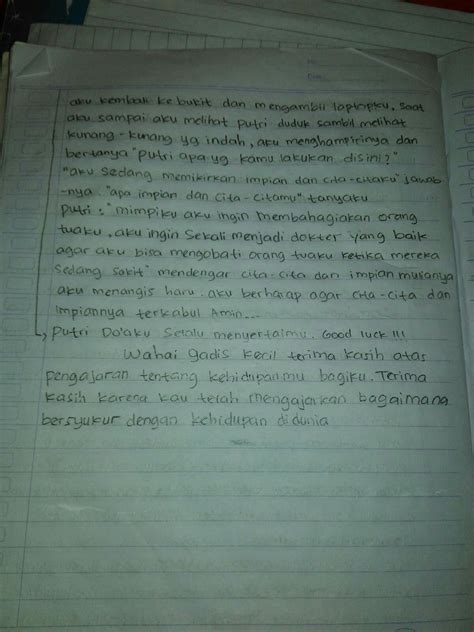 aku kembali ke bukit dan mengambil laptopku. saat
aku sampai aku melihat putri duduk sambil melihat
kunang-kunang yg indah, aku menghampirinya dan
bertanya "putri apa yg kamu lakukan disini?"
"aku sedang memikirkan impian dan cita-citaku" jawab
-nya. "apa impian dan cita-citamu" tanyaku
putri : "mimpiku aku ingin membahagiakan orang
tuaku. aku ingin sekali menjadi dokter yang baik
agar aku bisa mengobati orang tuaku ketika mereka
sedang sakit" mendengar cita-cita dan impian
aku menangis haru. aku berharap agar cita-cita dan
impiannya terkabul Amin...
Putri Do'aku selalu menyertaimu. Good luck !!!
Wahai gadis kecil terima kasih atas
pengajaran tentang kehidupanmu bagiku. Terima
kasih karena kau telah mengajarkan bagaimana
bersyukur dengan kehidupan didunia